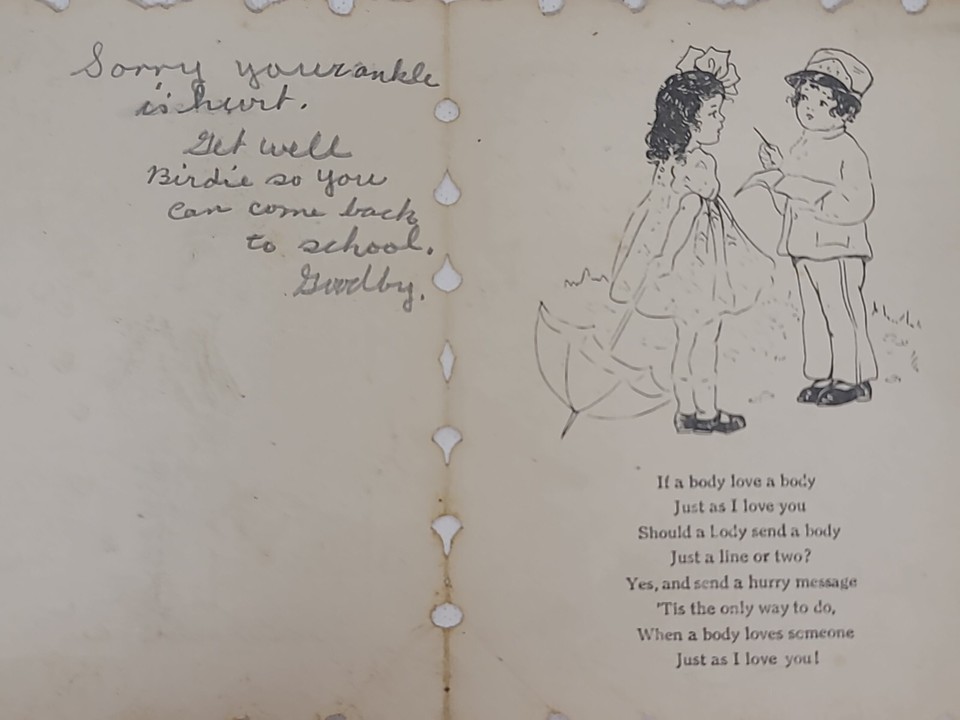 Sorry your ankle
is hurt.
Get well
Birdie so you
can come back
to school.
Goodby.
If a body love a body
Just as I love you
Should a Lody send a body
Just a line or two?
Yes, and send a hurry message
'Tis the only way to do,
When a body loves someone
Just as I love you!